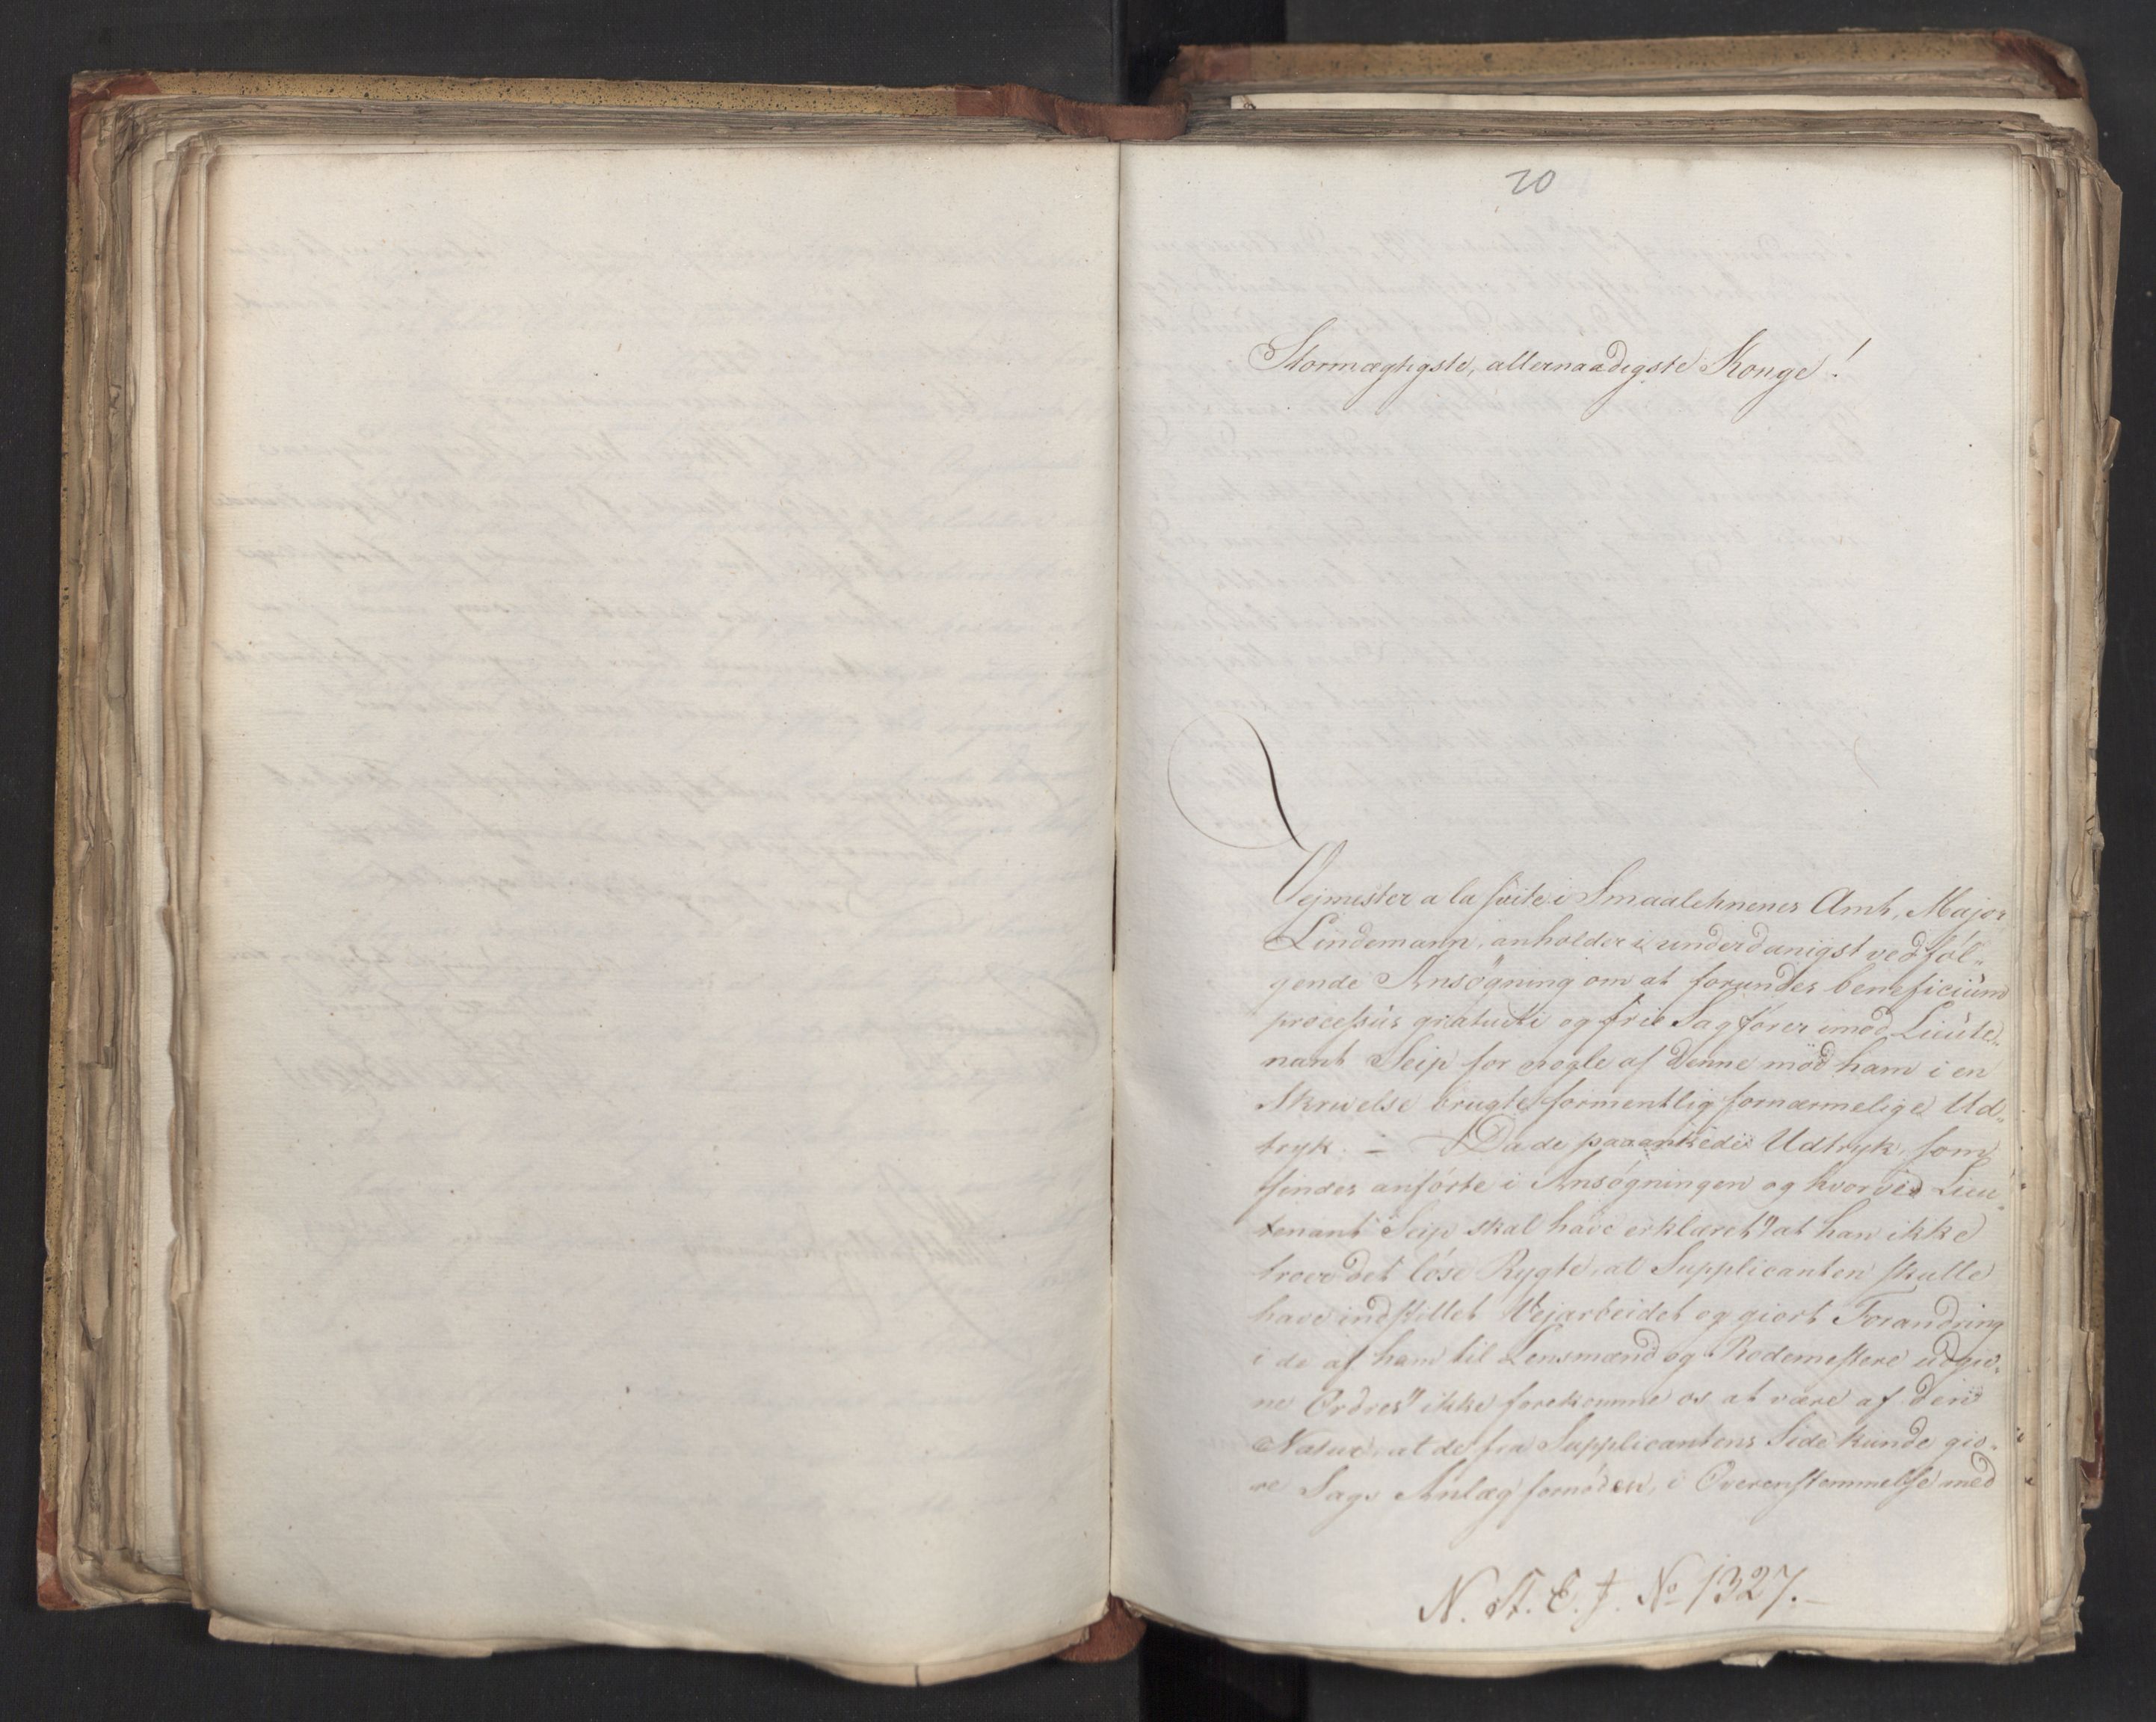 20
Stormægtigste, allernaadigste Konge!
Vejmester a la suite i Smaalehnenes Amt, Major
Lindemann, anholder i underdanigst vedføl„
gende Ansøgning om at forundes beneficium
processus gratuiti og frie Sagfører imod Lieute„
nant Seip for nogle af denne mod ham i en
Skrivelse brugte formentlig fornærmelige Ud„
tryk. – Da de paaankede Udtryk, som
findes anførte i Ansøgningen og hvorved Lieu„
tenant Seip skal have erklæret "at han ikke
troer det løse Rygte, at Supplicanten skulle
have indstillet Vejarbeidet og giort Forandring
i de af ham til Lensmænd og Rodemestere udgiv„
ne Ordres" ikke forekomme os at være af den
Natur, at de fra Supplicantens Side kunde giø„
re Sags Anlæg fornøden, i Overensstemmelse med
N. A. E. J. No 1327.